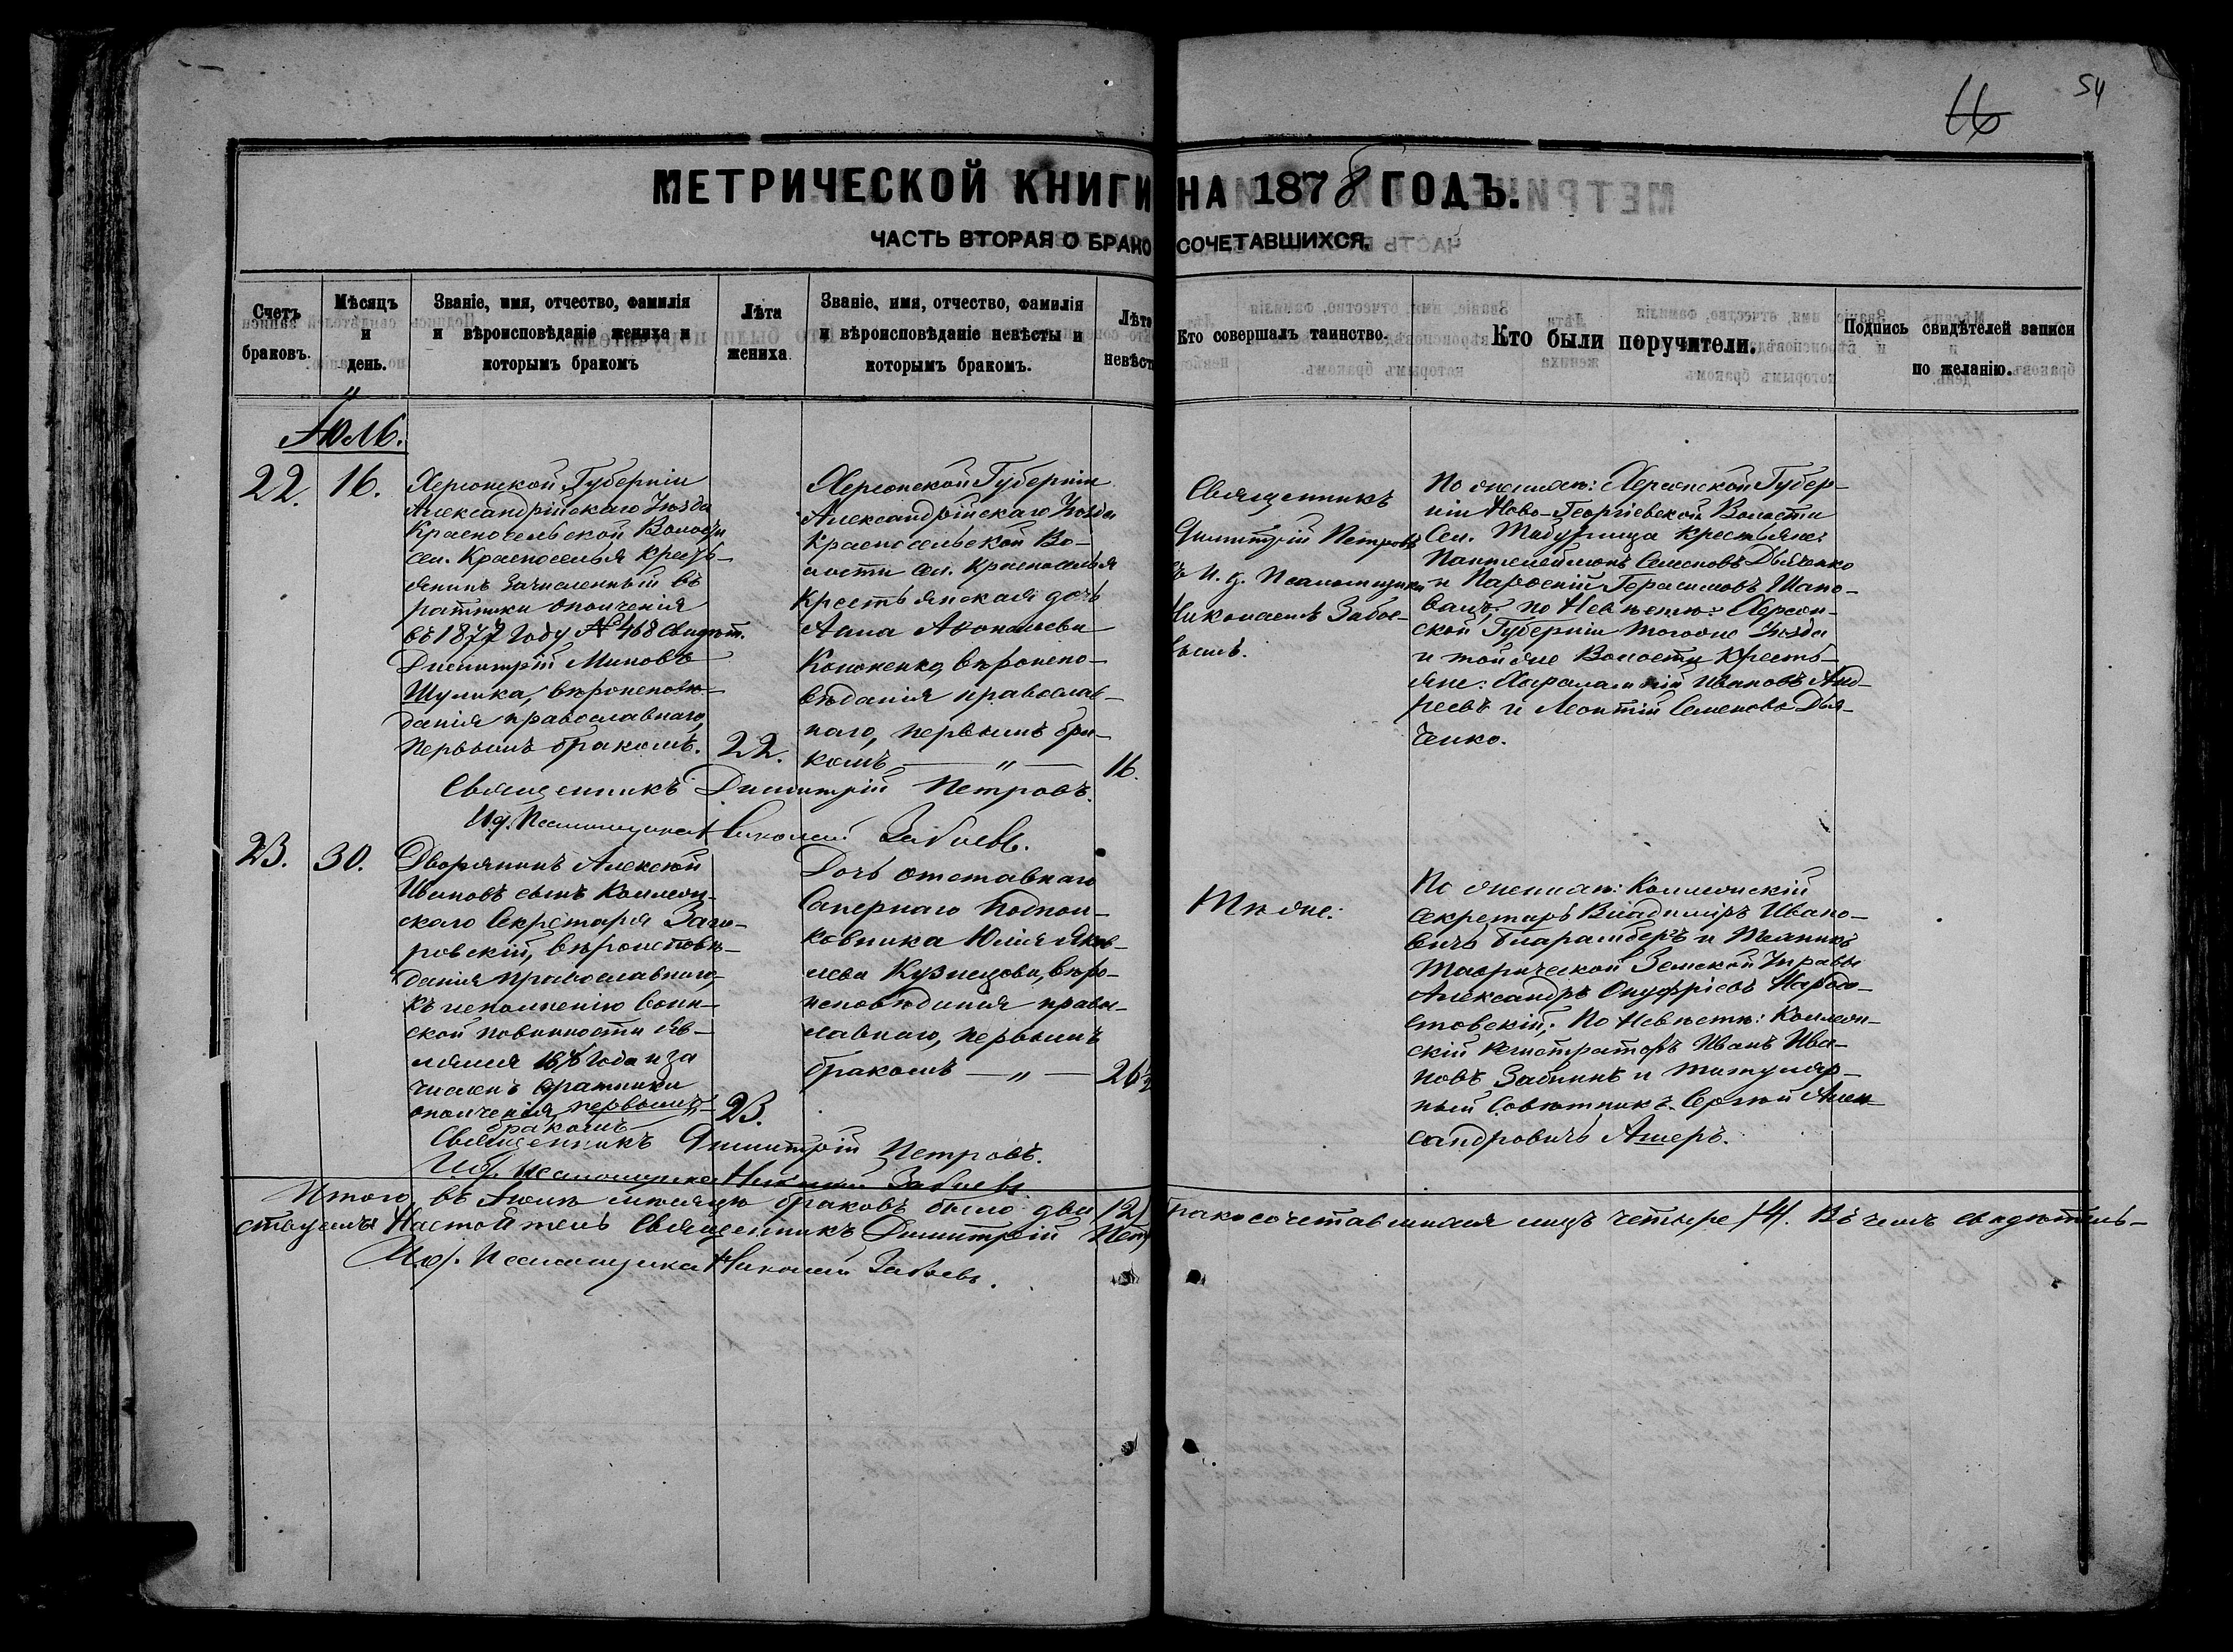 54
66
МЕТРИЧЕСКОЙ КНИГИ НА 1878 ГОДЪ.
ЧАСТЬ ВТОРАЯ О БРАКОСОЧЕТАВШИХСЯ.
Счетъ браковъ.
Мѣсяцъ и день.
Званіе, имя, отчество, фамилія и вѣроисповѣданіе жениха и которымъ бракомъ
Лѣта жениха
Званіе, имя, отчество, фамилія и вѣроисповѣданіе невѣсты и которымъ бракомъ.
Лѣта невѣст
Кто совершалъ таинство.
Кто были поручители.
Подпись свидѣтелей записи по желанію.
Іюль.
22.
16.
Херсонской Губерніи
Александрійскаго Уѣзда
Красносельской Волости
сел. Красноселья кресть-
янинъ зачисленный въ
ратники ополченія
въ 1877 году № 468 свидѣт.
Димитрій Миновъ
Шулика, вѣроисповѣ-
данія православнаго,
первымъ бракомъ.
22.
Херсонской Губерніи
Александрійскаго Уѣзда
Красносельской Во-
лости сел. Красноселья
крестьянская дочь
Анна Афонасьева
Кононенко, вѣроиспо-
вѣданія православ-
наго, первымъ бра-
комъ — " —
16.
Священникъ
Димитрій Петровъ
съ И. д. Псаломщика
Николаемъ Забое-
вымъ.
По женихѣ: Херсонской Губер-
ніи Ново-Георгіевской Волости
Сел. Табурища крестьяне:
Пантелеймонъ Семеновъ Дьяченко
и Пароеній Герасимовъ Шапо-
валъ, по Невѣстѣ: Херсон-
ской Губерніи тогоже Уѣзда
и той же Волости Кресть-
яне: Харалампій Ивановъ Анд-
реевъ и Леонтій Семеновъ Дья-
ченко.
Священникъ Димитрій Петровъ.
И. д. Псаломщика Николай Забоевъ.
23.
30.
Дворянинъ Алексѣй
Ивановъ сынъ Коллеж-
скаго Секретаря Заго-
ровскій, вѣроисповѣ-
данія православнаго,
къ исполненію воин-
ской повинности яв-
лялся 187 года и за
численъ в ратники
ополченія, первымъ
бракомъ
23.
Дочь отставнаго
Сапернаго Подпол-
ковника Юлія Яков-
лева Кузнецова, вѣро-
исповѣданія право-
славнаго, первымъ
бракомъ — " —
26½
Тѣже.
По женихѣ: Коллежскій
секретарь Владиміръ Ивано-
вичъ Бларамбергъ и Техникъ
Таврической Земской Управы
Александръ Онуфріевъ Народо-
стовскій; По Невѣстѣ: Коллеж-
скій Регистраторъ Иванъ Ива-
новъ Забнинъ и титуляр-
ный Совѣтникъ Сергѣй Алек-
сандровичъ Ашеръ.
Священникъ Димитрій Петровъ.
И. д. Псаломщика Николай Забоевъ.
Итого въ Іюлѣ мѣсяцѣ браковъ было два (2) бракосочетавшихся лицъ четыре (4). Въ чемъ свидѣтель-
ствуемъ Настоятель Священникъ Димитрій Петр
И. д. Псаломщика Николай Забоевъ.